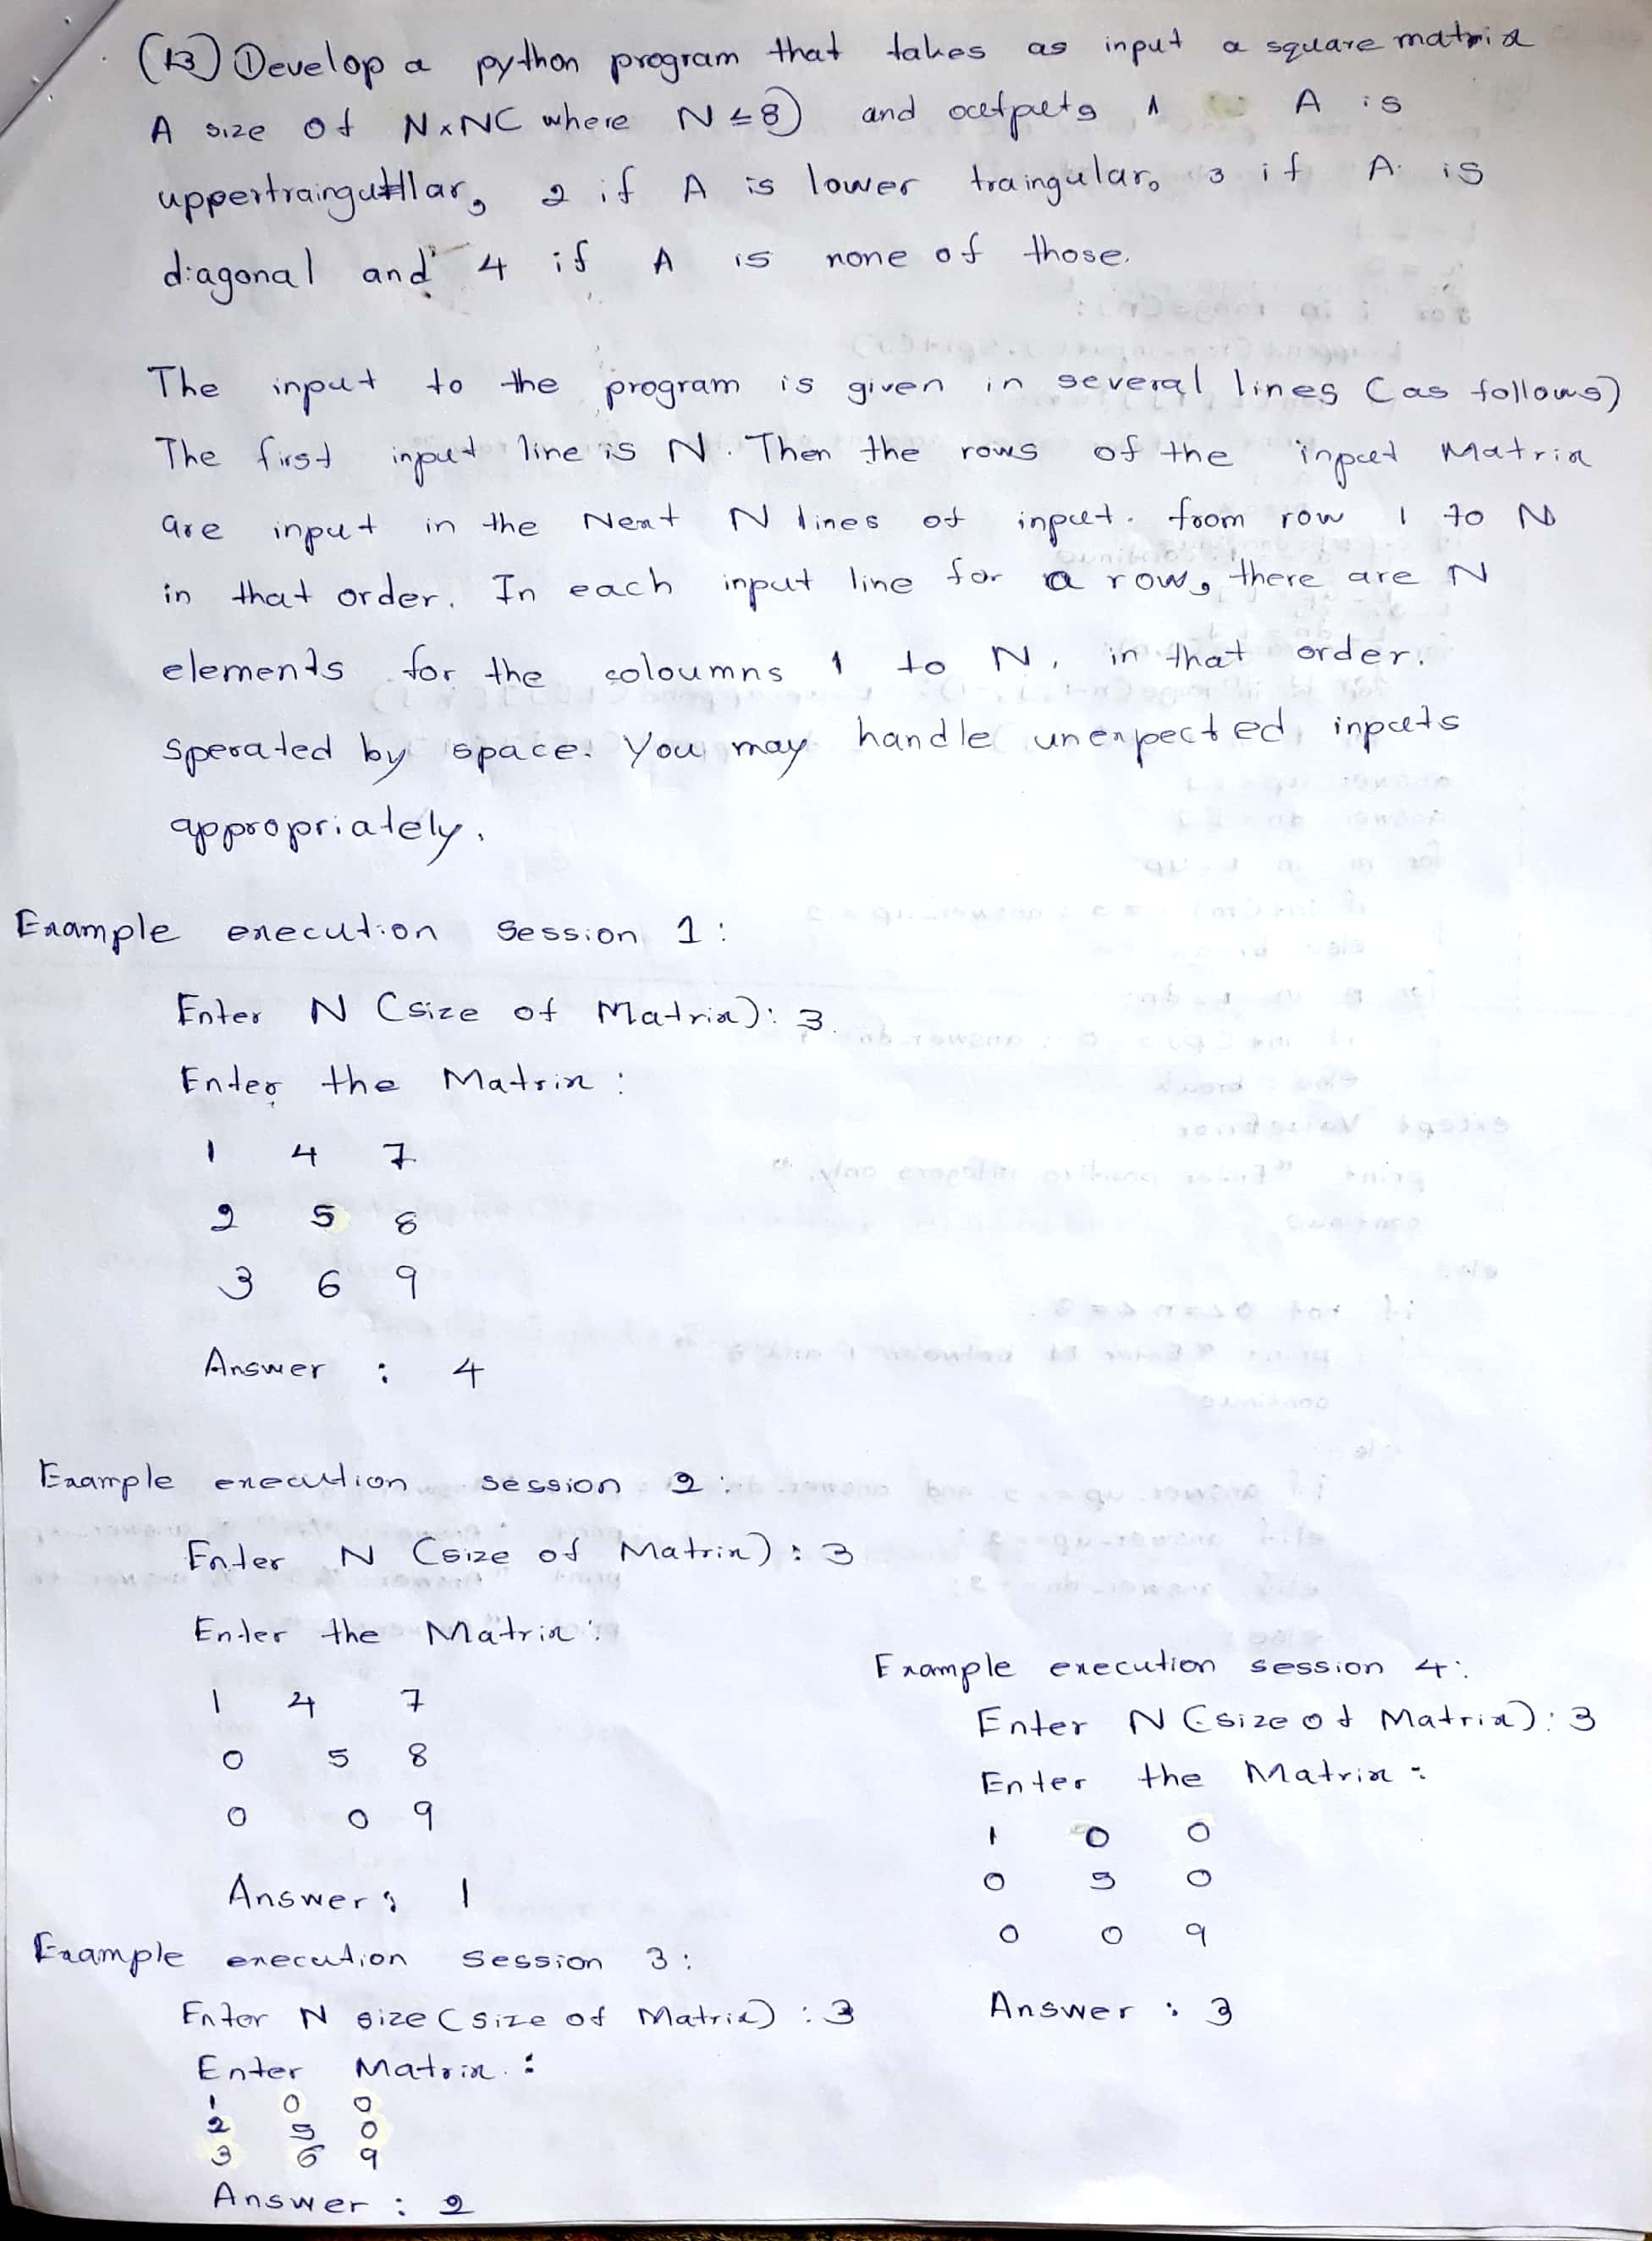 (13) Develop a python program that takes as input a square matrix
A size of N×NC where N ≤ 8) and outputs 1 A is
uppertraingutllar, 2 if A is lower traingular, 3 if A is
diagonal and 4 if A is none of those.
The input to the program is given in several lines (as follows)
The first input line is N. Then the rows of the input Matrix
are input in the Next N lines of input. from row 1 to N
in that order. In each input line for a row, there are N
elements for the coloumns 1 to N, in that order.
sperated by space. You may handle unexpected inputs
appropriately.
Example execution Session 1:
Enter N (size of Matrix): 3
Enter the Matrix:
1 4 7
2 5 8
3 6 9
Answer : 4
Example execution session 2:
Enter N (size of Matrix): 3
Enter the Matrix:
1 4 7
0 5 8
0 0 9
Answer: 1
Example execution session 3:
Enter N size (size of Matrix) : 3
Enter Matrix :
1 0 0
2 5 0
3 6 9
Answer : 2
Example execution session 4:
Enter N (size of Matrix): 3
Enter the Matrix:
1 0 0
0 5 0
0 0 9
Answer : 3